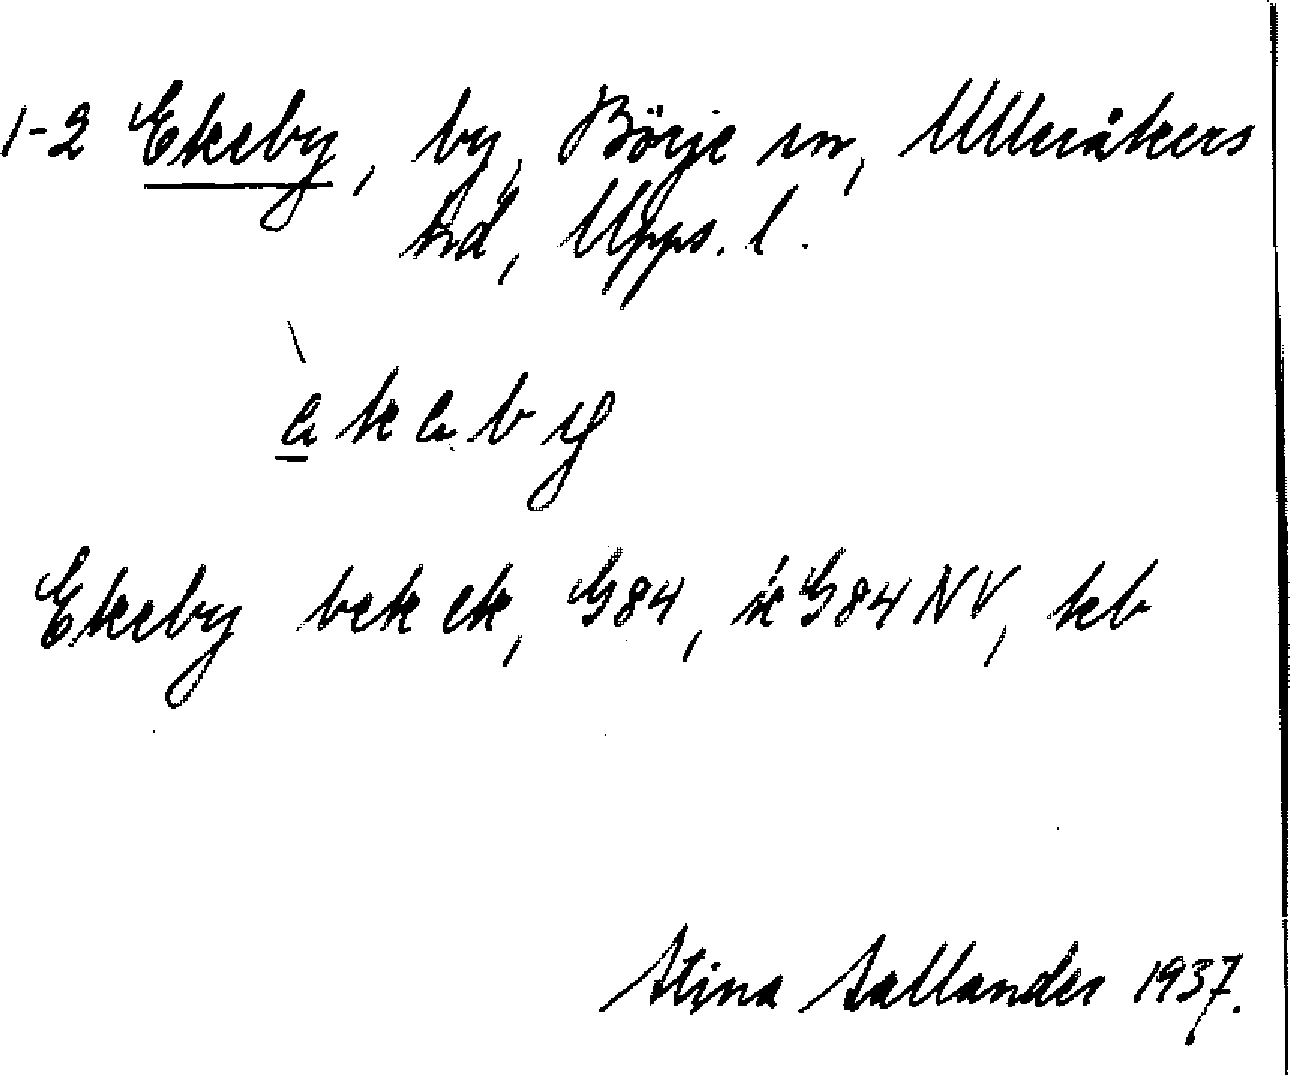 1-2 Ekeby, by, Börje sn, Ulleråkers
hd, Upps. l.
Ekeby bek ek, G84, G84 NV, kb
Stina Sallander 1937.